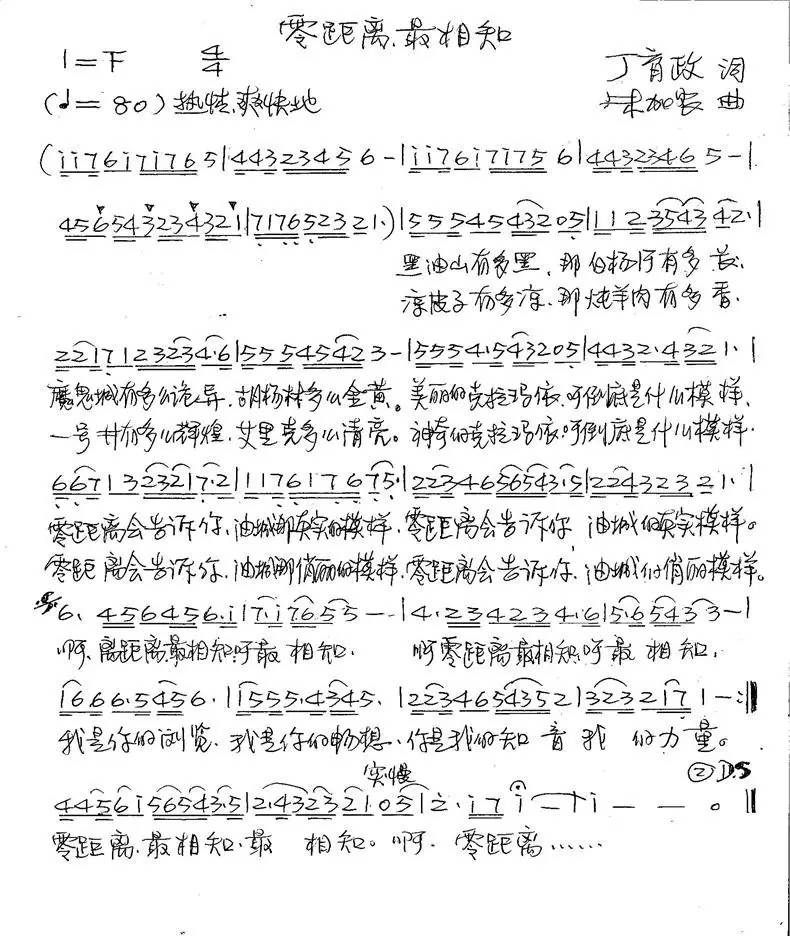 零距离、最相知
1=F 4/4 丁育政 词
(♩=80) 热情、爽快地 朱加农 曲
(i i 7 6 i 7 i 7 6 5 | 4 4 3 2 3 4 5 6 - | i i 7 6 i 7 i 7 5 6 | 4 4 3 2 3 4 6 5 - |
4 5 6 5 4 3 2 3 4 3 2 1 | 7 1 7 6 5 2 3 2 1·) | 5 5 5 4 5 4 3 2 0 5 | 1 1 2 3 5 4 3 4 2· |
黑油山有多黑、那白杨河有多长、
凉皮子有多凉、那炖羊肉有多香、
2 2 1 7 1 2 3 2 3 4·6 | 5 5 5 4 5 4 2 3 - | 5 5 5 4·5 4 3 2 0 5 | 4 4 3 2·4 3 2 1· |
魔鬼城有多么诡异、胡杨林多么金黄。美丽的克拉玛依、呀倒底是什么模样、
一号井有多么辉煌、艾里克多么清亮。神奇的克拉玛依、呀倒底是什么模样·
6 6 7 1 3 2 3 2 1 7·2 | 1 1 7 6 1 7 6 7 5· | 2 2 3 4 6 5 6 5 4 3·5 | 2 2 4 3 2 3 2 1· |
零距离会告诉你、油城那真实的模样、零距离会告诉你、油城的真实模样。
零距离会告诉你、油城那俏丽的模样、零距离会告诉你、油城们俏丽的模样。
6· 4 5 6 4 5 6·i | 7·i 7 6 5 5 - - | 4·2 3 4 2 3 4·6 | 5·6 5 4 3 3 - |
啊、离距离最相知呀最 相知、 啊零距离最相知呀最 相知、
i 6 6 6·5 4 5 6· | i 5 5 5·4 3 4 5· | 2 2 3 4 6 5 4 3 5 2 | 3 2 3 2 1 7 1 - :‖
我是你的浏览、我是你的畅想、你是我的知音我 的力量。
突慢 ② D.S
4 4 5 6 i 5 6 5 4 3·5 | 2·4 3 2 3 2 1 0 5 | 2· i 7 i - | i - - 。‖
零距离、最相知、最 相知。啊、零距离……